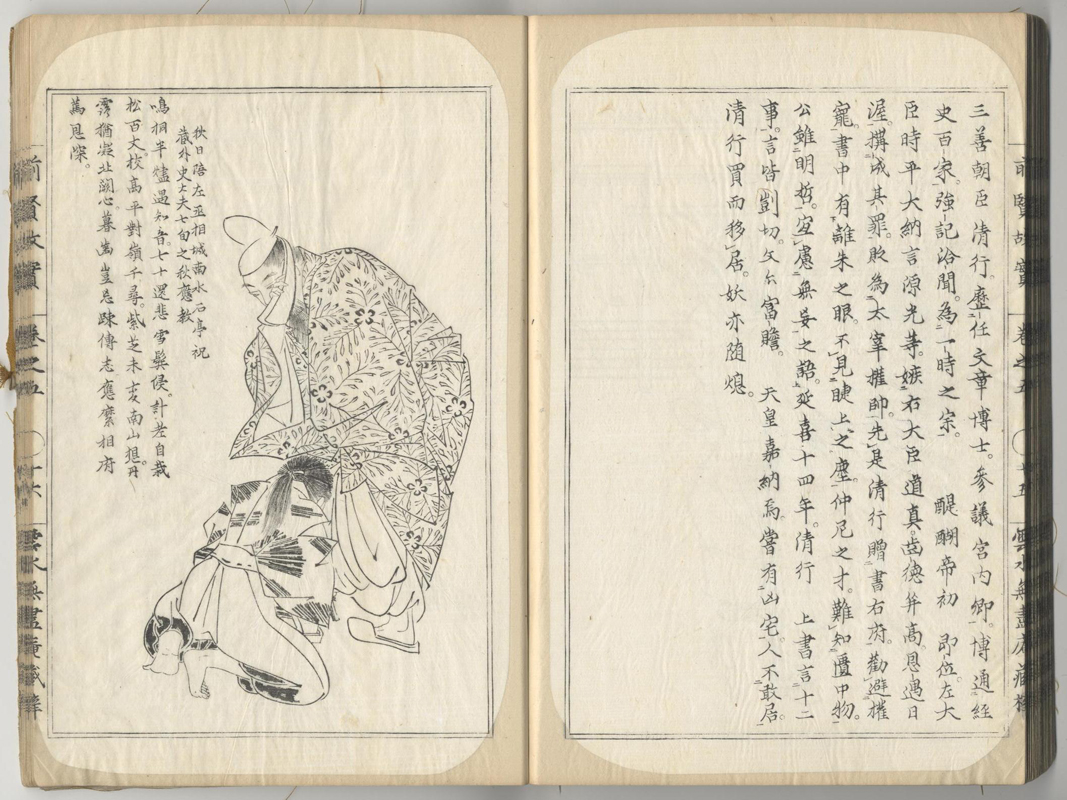 三善朝臣清行。歷任文章博士。參議宮內卿。博通經
史百家。強記洽聞。為一時之宗。 醍醐帝初 即位。左大
臣時平大納言源光等。嫉右大臣道真。齒德并高。恩遇日
渥。搆成其罪。貶為太宰權帥。先是清行贈書右府。勸避權
寵。書中有離朱之眼。不見睫上之塵。仲尼之才。難知匱中物。
公雖明哲。宜慮無妄之語。延喜十四年。清行 上書言十二
事。言皆剴切。文亦富贍。 天皇嘉納焉。嘗有凶宅。人不敢居。
清行買而移居。妖亦随熄。
前賢故實 卷之五 〇 十五 雲水無盡庵藏梓
秋日陪左丞相城南水石亭祝
藏外史大夫七旬之秋應教
鳴桐半燼遇知音。七十還悲雪鬢侵。計老自栽
松百丈。校高平對嶺千尋。紫芝未変南山想。丹
露猶凝北闕心。暮齒豈忘疎傅志。應縻相府
萬恩深。
前賢故實 卷之五 〇 十六 雲水無盡庵藏梓